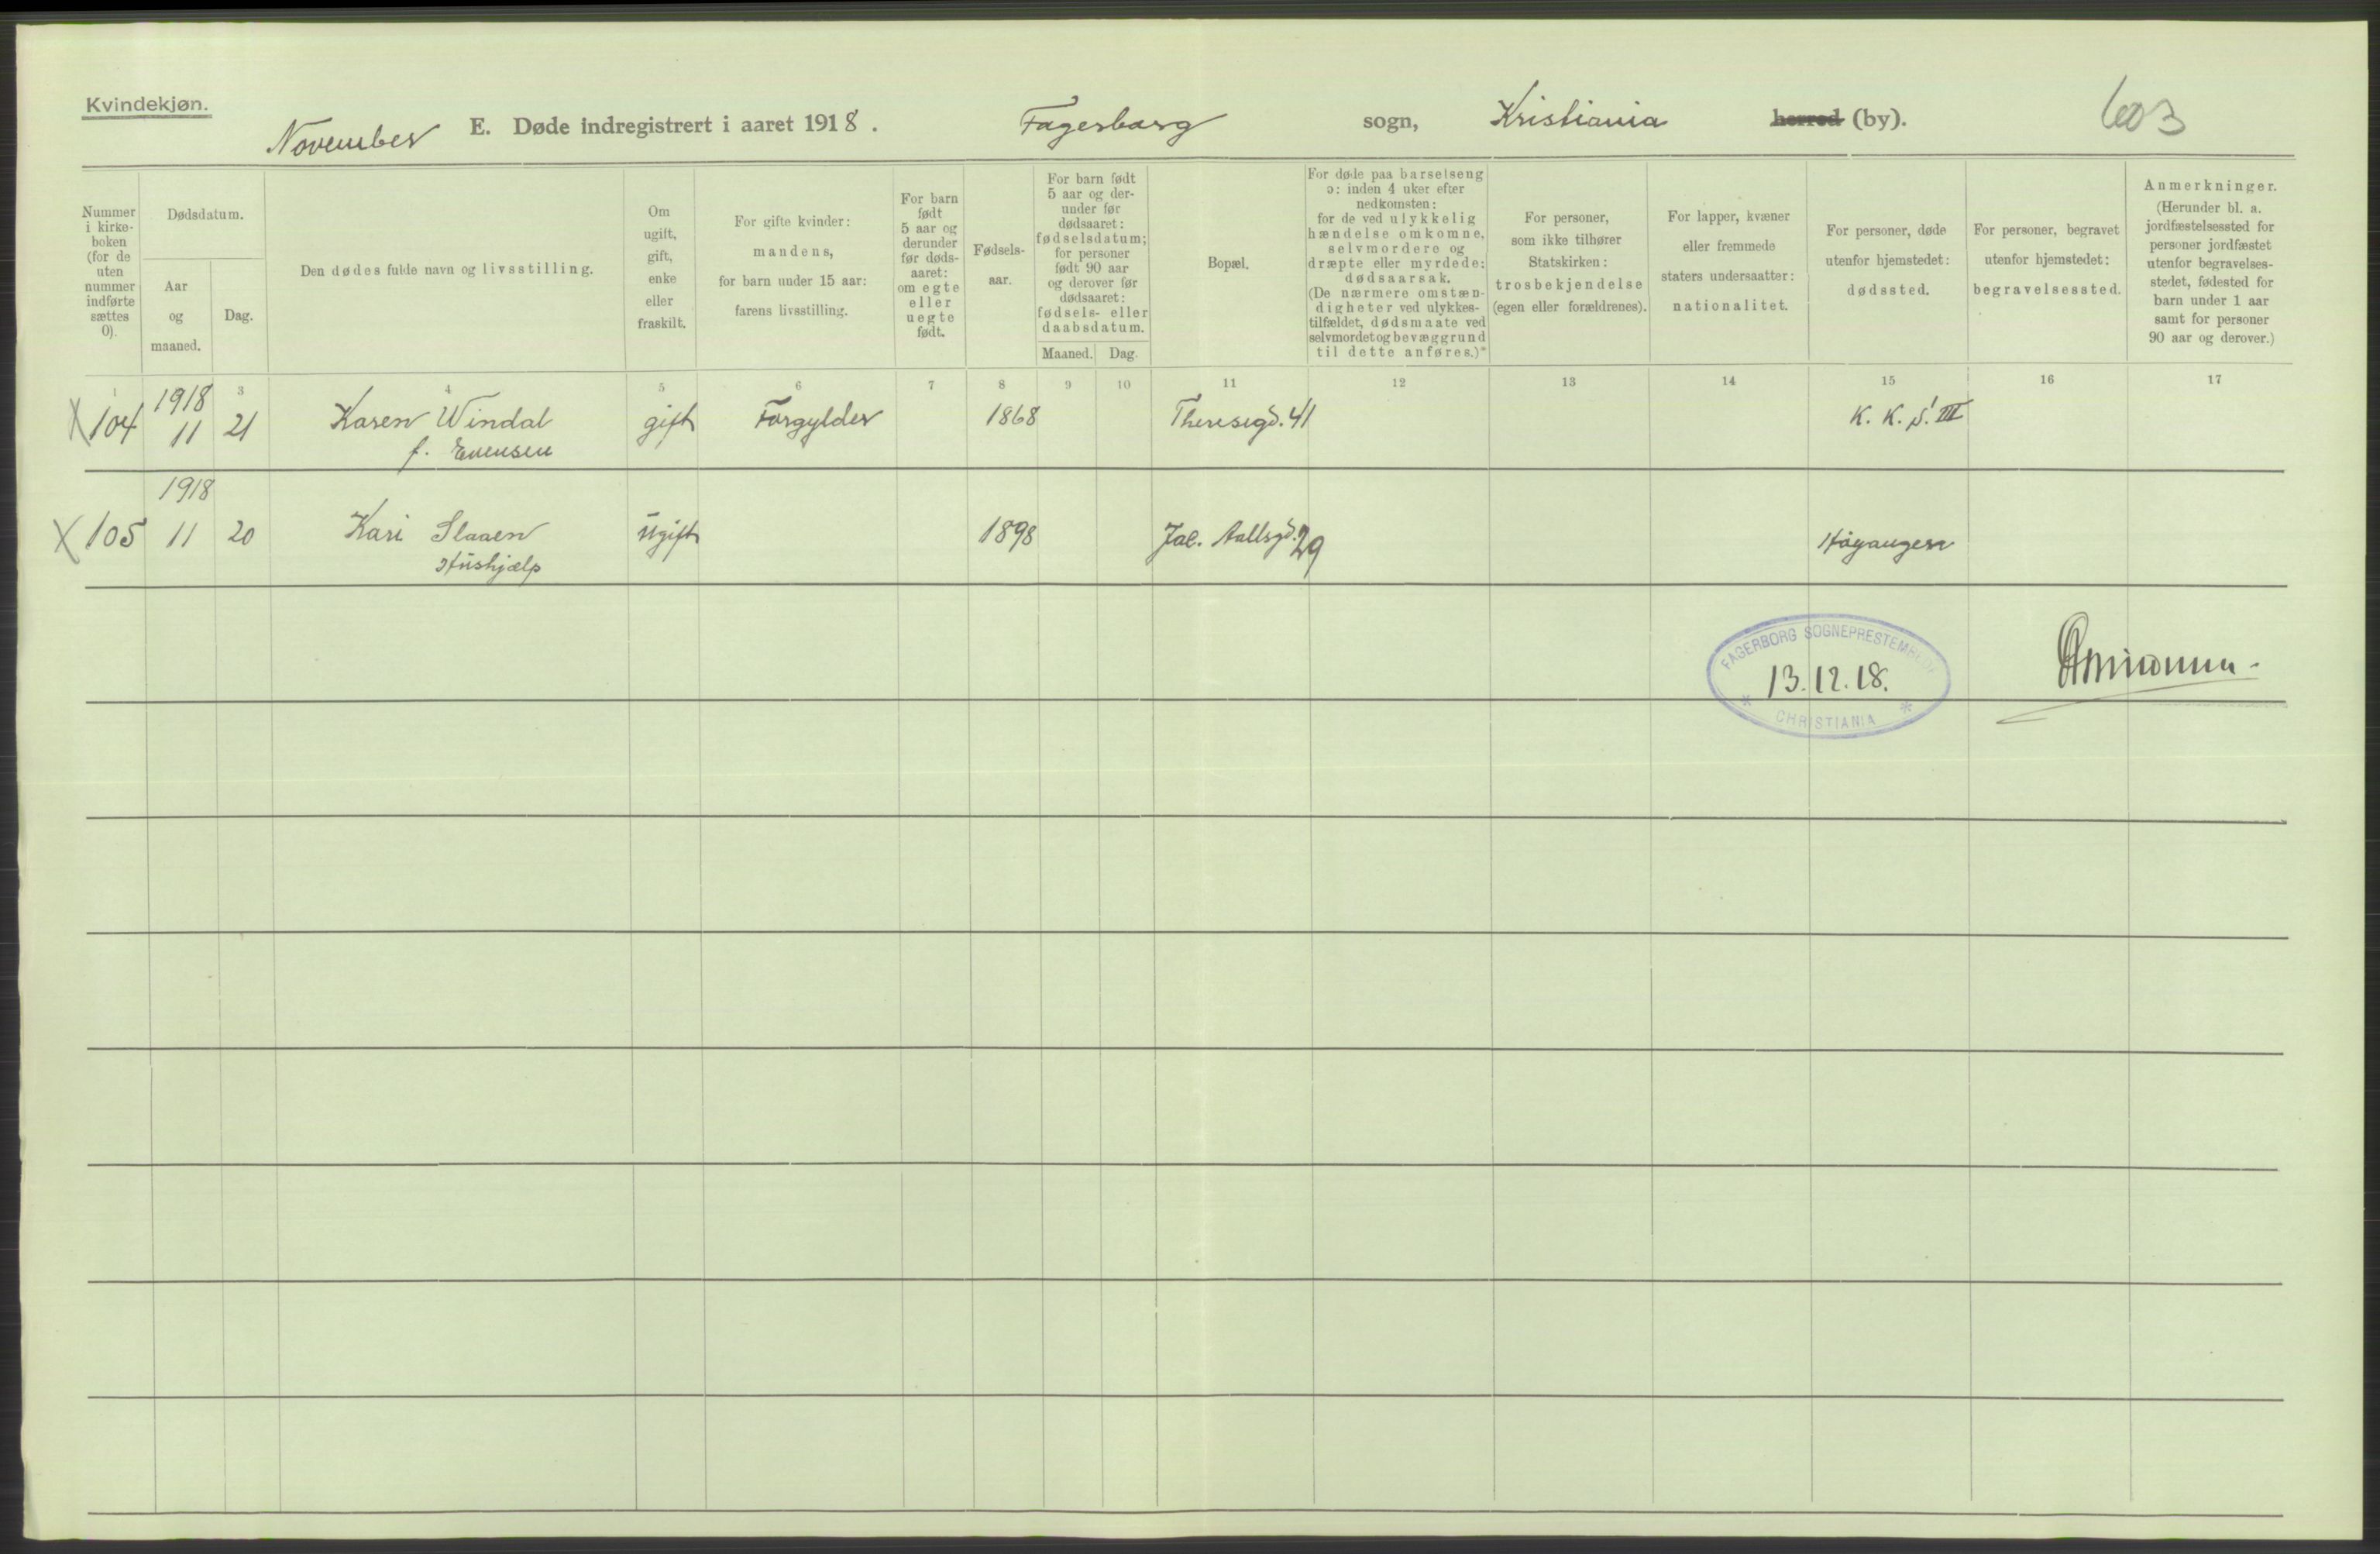 Kvindekjøn.
November E. Døde indregistrert i aaret 1918. Fagerborg sogn, Kristiania herred (by). 603
Nummer
i kirke-
boken
(for de
uten
nummer
indførte
sættes
0).
Dødsdatum.
Aar
og
maaned.
Dag.
Den dødes fulde navn og livsstilling.
Om
ugift,
gift,
enke
eller
fraskilt.
For gifte kvinder:
mandens,
for barn under 15 aar:
farens livsstilling.
For barn
født
5 aar og
derunder
før døds-
aaret:
om egte
eller
uegte
født.
Fødsels-
aar.
For barn født
5 aar og der-
under før
dødsaaret:
fødselsdatum;
for personer
født 90 aar
og derover før
dødsaaret:
fødsels- eller
daabsdatum.
Maaned. Dag.
Bopæl.
For døde paa barselseng
ɔ: inden 4 uker efter
nedkomsten:
for de ved ulykkelig
hændelse omkomne,
selvmordere og
dræpte eller myrdede:
dødsaarsak.
(De nærmere omstæn-
digheter ved ulykkes-
tilfældet, dødsmaate ved
selvmordet og bevæggrund
til dette anføres.)*
For personer,
som ikke tilhører
Statskirken:
trosbekjendelse
(egen eller forældrenes).
For lapper, kvæner
eller fremmede
staters undersaatter:
nationalitet.
For personer, døde
utenfor hjemstedet:
dødssted.
For personer, begravet
utenfor hjemstedet:
begravelsessted.
Anmerkninger.
(Herunder bl. a.
jordfæstelsessted for
personer jordfæstet
utenfor begravelses-
stedet, fødested for
barn under 1 aar
samt for personer
90 aar og derover.)
1 3 4 5 6 7 8 9 10 11 12 13 14 15 16 17
1918
X 104 11 21 Karen Windal gift Forgylder 1868 Theresegd. 41 K. K. S. III
f. Evensen
1918
X 105 11 20 Kari Slaaen Ugift 1898 Jac. Aallsgd. 29 Høyanger
Hushjælp
FAGERBORG SOGNEPRESTEMB
13.12.18.
CHRISTIANIA